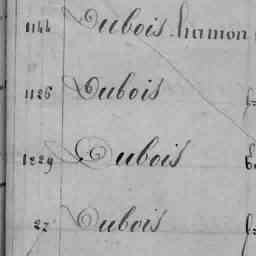 1144 Dubois hamon
1126 Dubois
1229 Dubois
22 Dubois